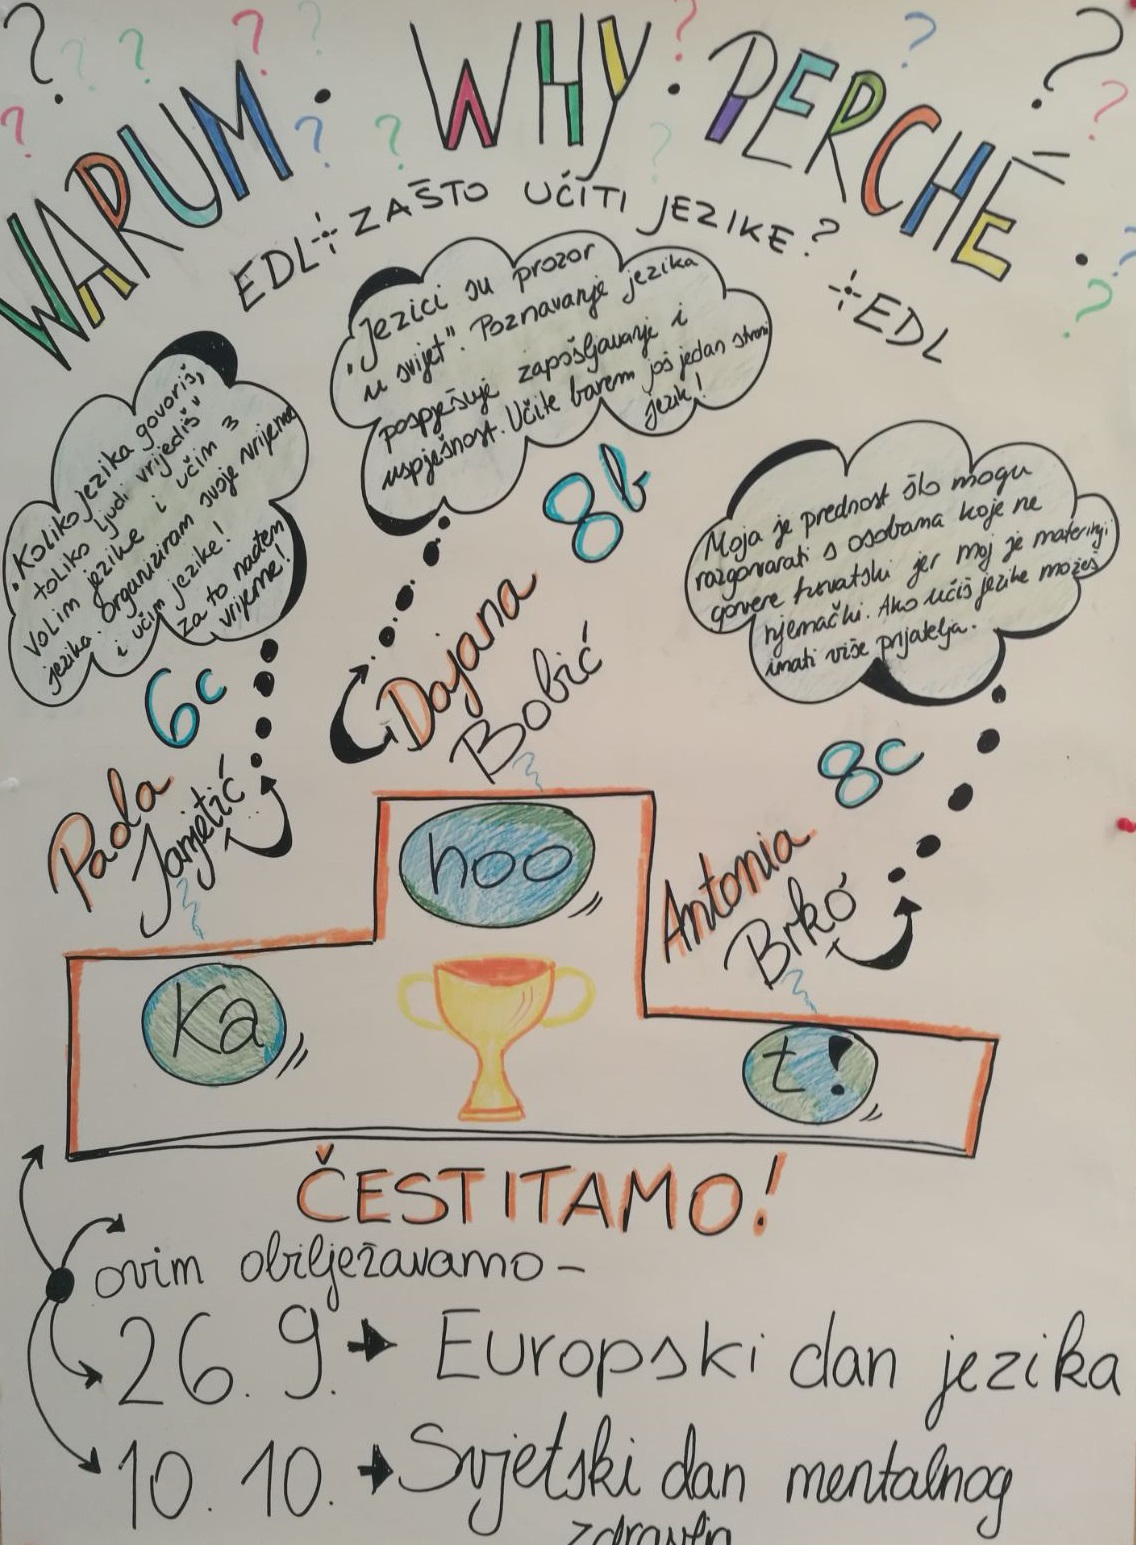 WARUM. WHY. PERCHÉ.
EDL ÷ ZAŠTO UČITI JEZIKE? ÷ EDL
„Jezici su prozor
u svijet". Poznavanje jezika
pospješuje zapošljavanje i
uspješnost. Učite barem još jedan strani
jezik!
8b
Dajana
Bobić
„Koliko jezika govoriš,
toliko ljudi vrijediš"
Volim jezike i učim 3
jezika. Organiziram svoje vrijeme
i učim jezike!
za to nađem
vrijeme!
6c
Paola
Janjetić
Moja je prednost što mogu
razgovarati s osobama koje ne
govore hrvatski jer moj je materinji
njemački. Ako učiš jezike možeš
imati više prijatelja.
8c
Antonia
Brkó
hoo
Ka
t!
ČESTITAMO!
ovim obilježavamo -
26. 9. → Europski dan jezika
10. 10. → Svjetski dan mentalnog
zdravlja